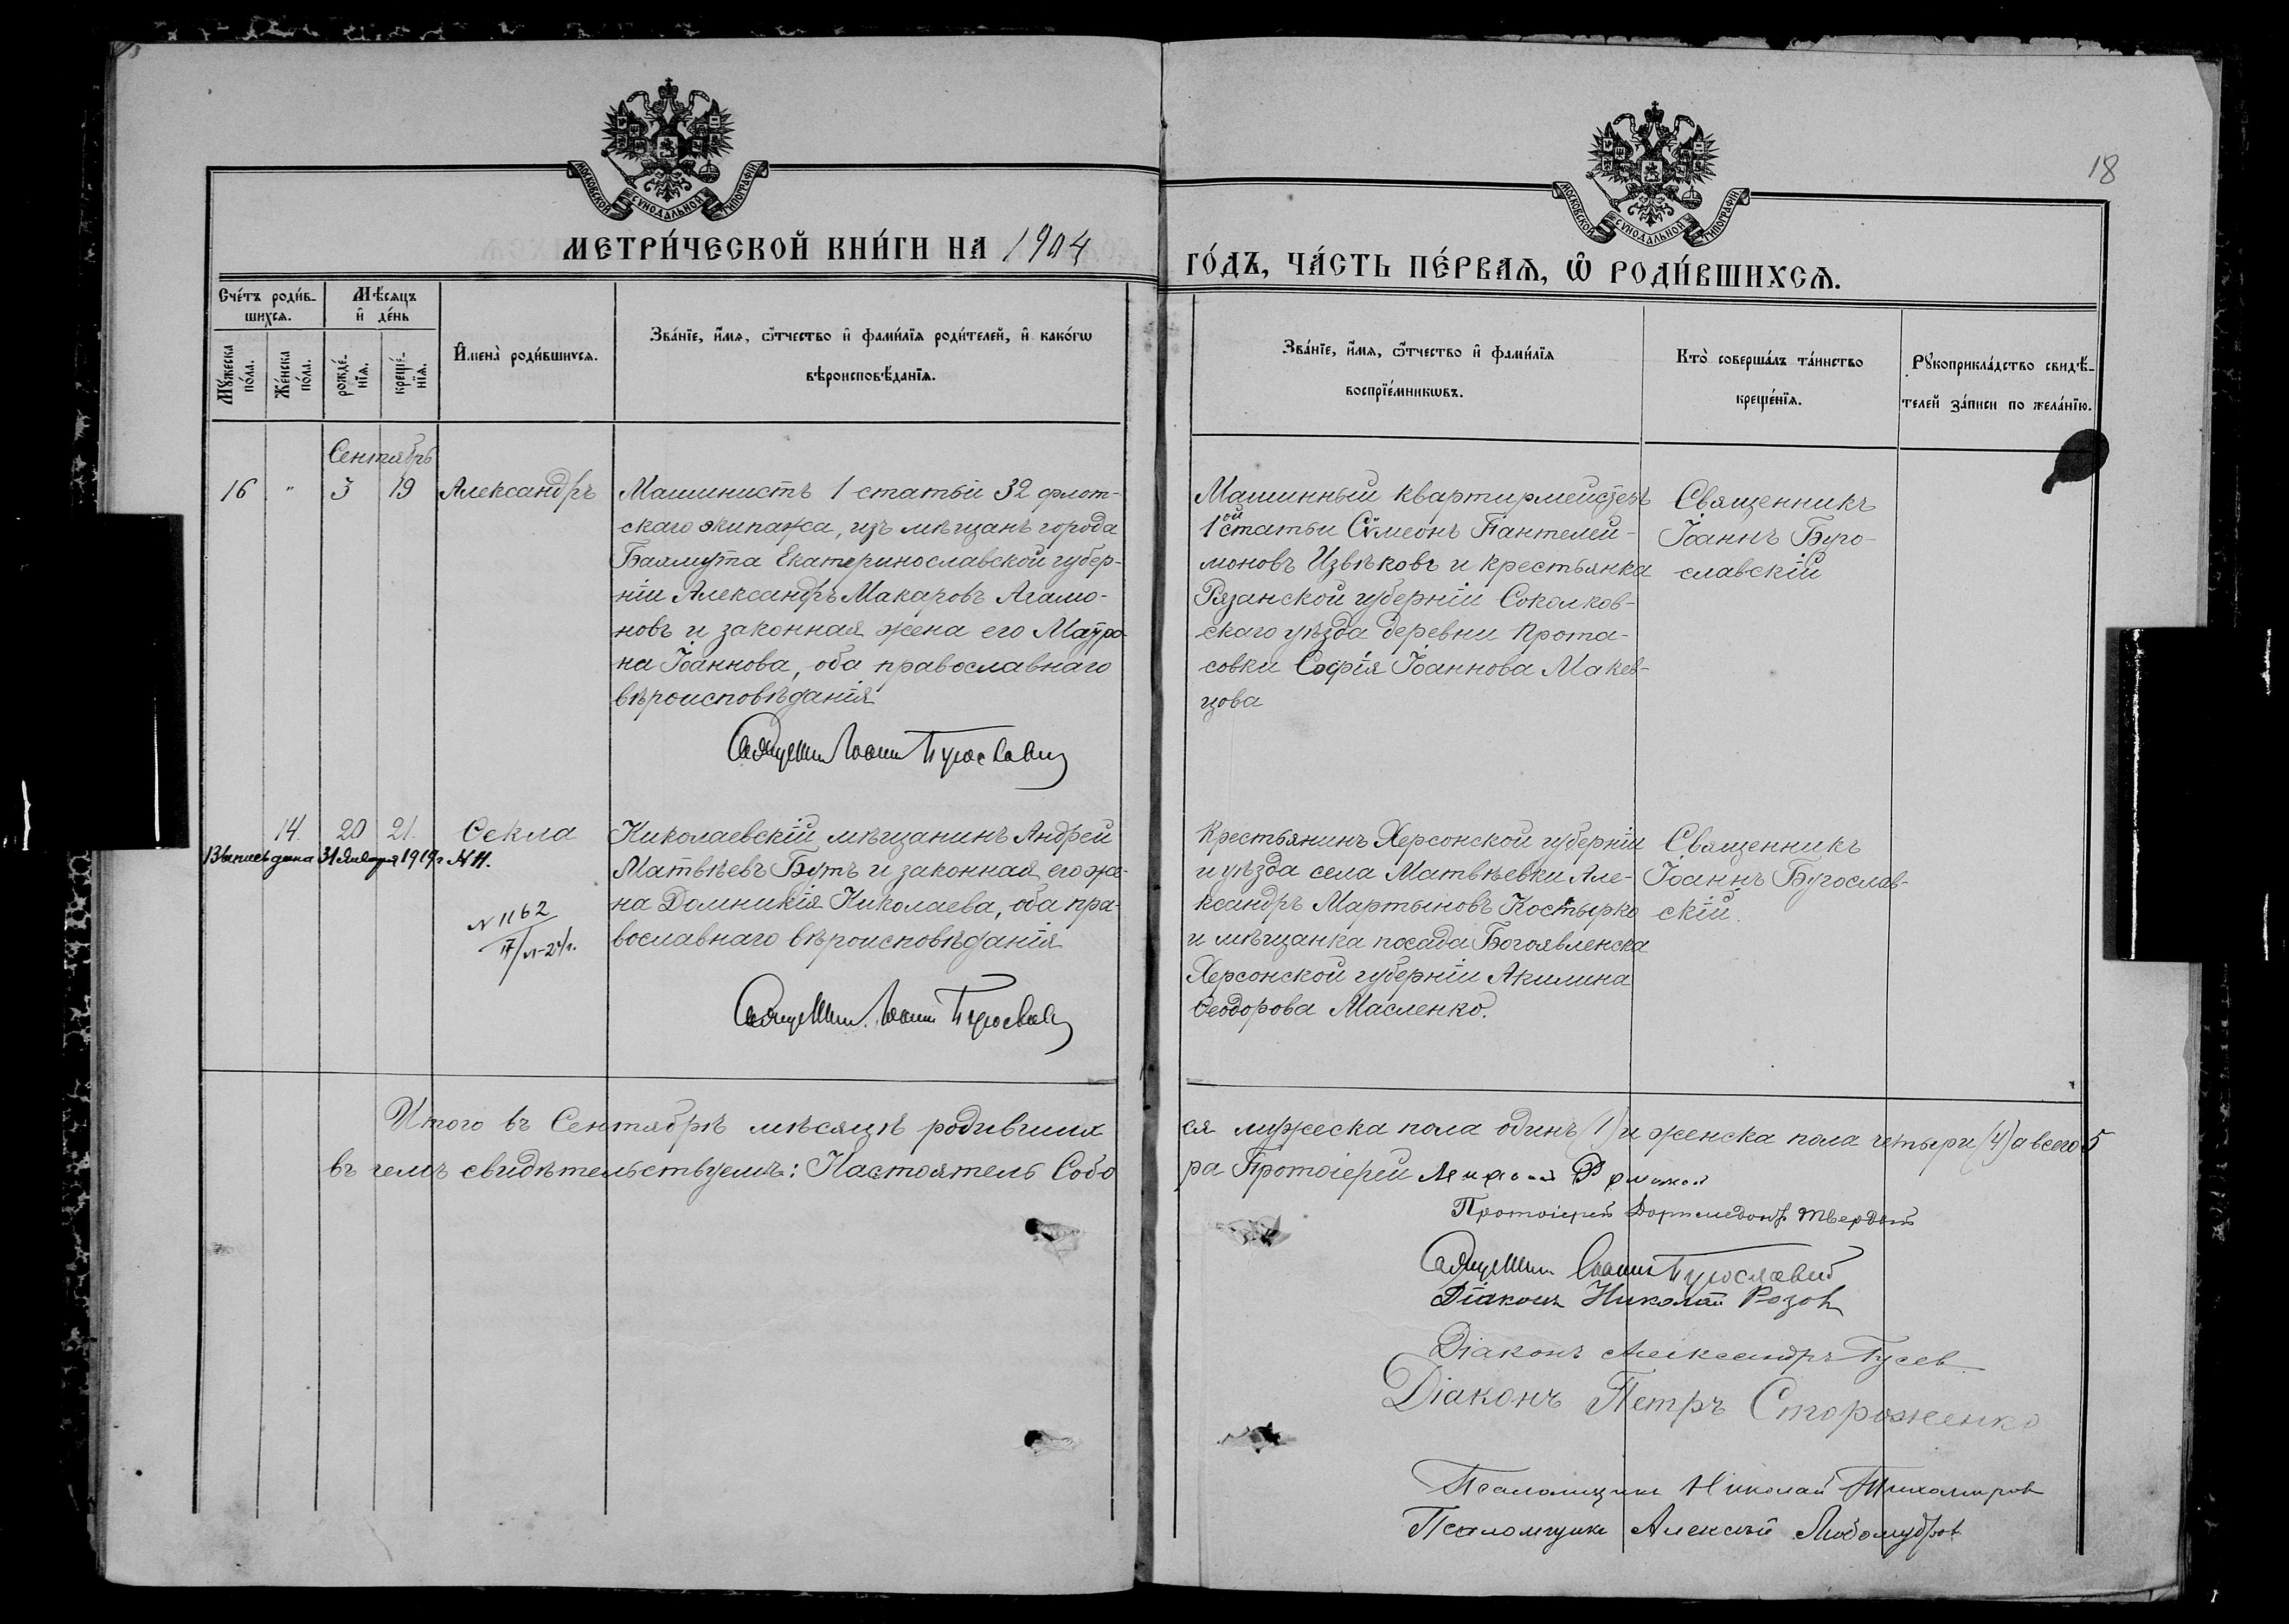 18
МОСКОВСКОЙ СУНОДАЛЬНОЙ ТИПОГРАФІИ.
МОСКОВСКОЙ СУНОДАЛЬНОЙ ТИПОГРАФІИ.
МЕТРИ́ЧЕСКОЙ КНИ́ГИ НА 1904
ГО́ДЪ, ЧА́СТЬ ПЕ́РВАѦ, Ѡ҆ РОДИ́ВШИХСѦ.
Сче́тъ роди́в-
шихсѧ.
Мѣ́сѧцъ
и҆ де́нь
Мꙋ́жеска
по́ла.
Же́нска
по́ла.
рожде́-
нїѧ.
креще́-
нїѧ.
И҆мена̀ роди́вшихсѧ.
Зва́нїе, и҆́мѧ, ѻ҆́тчество и҆ фами́лїѧ роди́телей, и҆ како́гѡ
вѣроисповѣ́данїѧ.
Зва́нїе, и҆́мѧ, ѻ҆́тчество и҆ фами́лїѧ
воспрїе́мникѡвъ.
Кто̀ соверша́лъ та́инство
креще́нїѧ.
Рꙋкоприкла́дство свидѣ́-
телей за́писи по жела́нїю.
Сентябрь
16 " 3 19 Александръ
Машинистъ 1 статьи 32 флот-
скаго экипажа, изъ мѣщанъ города
Бахмута Екатеринославской губер-
ніи Александръ Макаровъ Агамо-
новъ и законная жена его Матро-
на Іоаннова, оба православнаго
вѣроисповѣданія
Машинный квартирмейстеръ
1ой статьи Сѵмеонъ Пантелей-
моновъ Извѣковъ и крестьянка
Рязанской губерніи
скаго уѣзда деревни Прота-
совки Софія Іоаннова Макев-
цова
Священникъ
Іоаннъ Буго-
славскій
Священникъ Іоаннъ Бугославскій
14 20 21. Ѳекла
Выпись дана 31 Января 1919 г
N 1162
Николаевскій мѣщанинъ Андрей
Матвѣевъ Бутъ и законная его же-
на Домникія Николаева, оба пра-
вославнаго вѣроисповѣданія
Крестьянинъ Херсонской губерніи
и уѣзда села Матвѣевки Але-
ксандръ Мартыновъ Костырко
и мѣщанка посада Богоявленска
Херсонской губерніи Акилина
Ѳеодорова Масленко.
Священникъ
Іоаннъ Бугослав-
скій.
Священникъ Іоаннъ Бугославскій
Итого въ Сентябрѣ мѣсяцѣ родивших
ся мужеска пола одинъ (1) и женска пола четыри (4) а всего 5
въ чемъ свидѣтельствуемъ: Настоятель Собо
ра Протоіерей
Протоіерей Доримедонтъ Твердый
Священникъ Іоаннъ Бугославскій
Діаконъ Николай Розов
Діаконъ Александръ Гусев
Діаконъ Петръ Стороженко
Псаломщикъ Николай Тихомиров
Псаломщикъ Алексѣй Любомудров